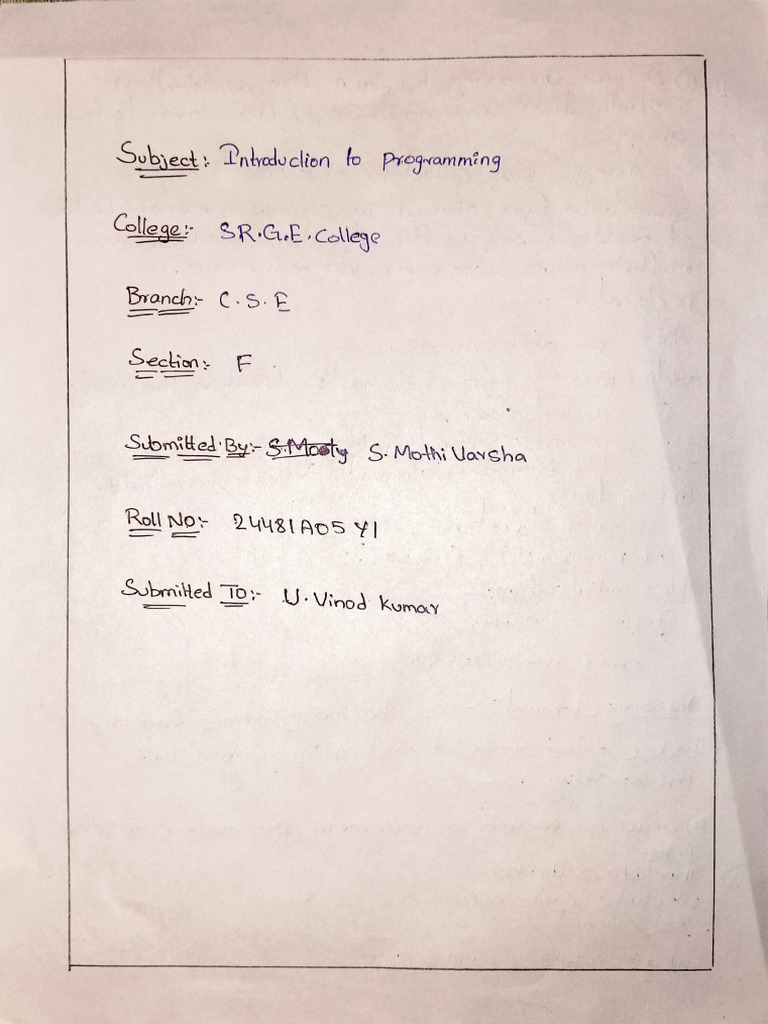 Subject:- Introduction to programming
College:- S.R.G.E. College
Branch:- C.S.E
Section:- F
Submitted By:- S. Mothi Varsha
Roll No:- 24481A05Y1
Submitted To:- U. Vinod Kumar